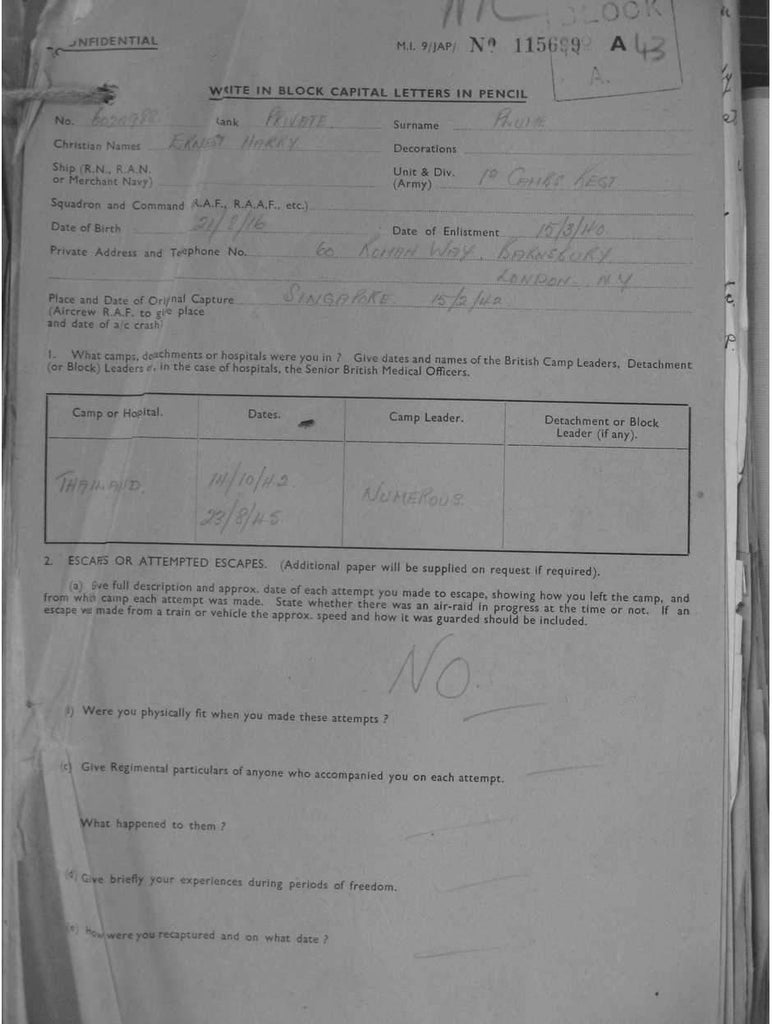 BLOCK
CONFIDENTIAL
M.I. 9/JAP/ Nº 115699 A 43
A.
WRITE IN BLOCK CAPITAL LETTERS IN PENCIL
No. Rank PRIVATE Surname
Christian Names ERNEST HARRY Decorations
Ship (R.N., R.A.N. or Merchant Navy)
Unit & Div. (Army) CAMBS REGT
Squadron and Command (R.A.F., R.A.A.F., etc.)
Date of Birth 21/8/16 Date of Enlistment 15/3/40
Private Address and Telephone No. 60 ROMAN WAY, BARNSBURY
LONDON
Place and Date of Original Capture SINGAPORE 15/2/42
(Aircrew R.A.F. to give place
and date of a/c crash)
1. What camps, detachments or hospitals were you in ? Give dates and names of the British Camp Leaders, Detachment
(or Block) Leaders or, in the case of hospitals, the Senior British Medical Officers.
Camp or Hospital. Dates. Camp Leader. Detachment or Block
Leader (if any).
THAILAND. 14/10/42 NUMEROUS.
23/8/45
2. ESCAPES OR ATTEMPTED ESCAPES. (Additional paper will be supplied on request if required).
(a) Give full description and approx. date of each attempt you made to escape, showing how you left the camp, and
from what camp each attempt was made. State whether there was an air-raid in progress at the time or not. If an
escape was made from a train or vehicle the approx. speed and how it was guarded should be included.
NO.
(b) Were you physically fit when you made these attempts ?
(c) Give Regimental particulars of anyone who accompanied you on each attempt.
What happened to them ?
(d) Give briefly your experiences during periods of freedom.
(e) How were you recaptured and on what date ?